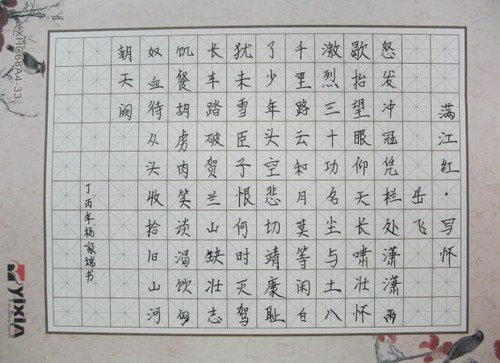 满江红·写怀
岳飞
怒发冲冠凭栏处潇潇雨
歇抬望眼仰天长啸壮怀
激烈三十功名尘与土八
千里路云和月莫等闲白
了少年头空悲切靖康耻
犹未雪臣子恨何时灭驾
长车踏破贺兰山缺壮志
饥餐胡虏肉笑谈渴饮匈
奴血待从头收拾旧山河
朝天阙
丁丙年杨家瑞书